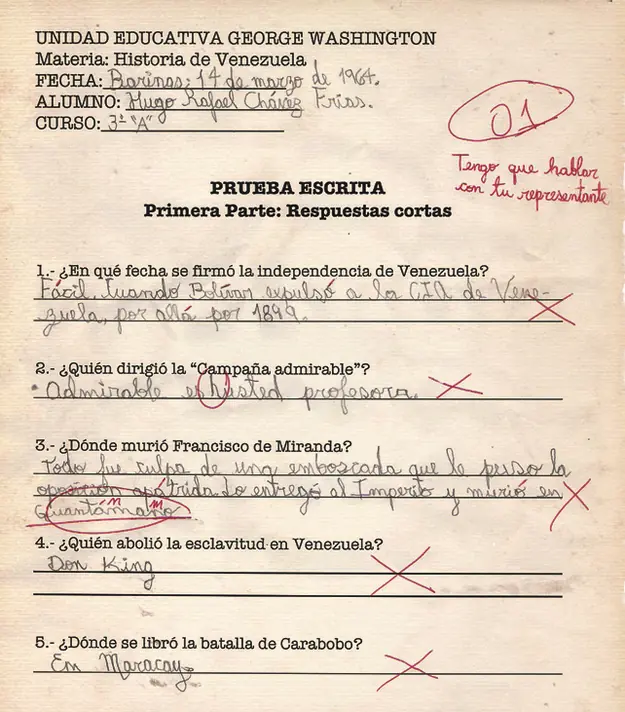 UNIDAD EDUCATIVA GEORGE WASHINGTON
Materia: Historia de Venezuela
FECHA: Barinas; 14 de marzo de 1964.
ALUMNO: Hugo Rafael Chávez Frías.
CURSO: 3º "A"
01
Tengo que hablar
con tu representante
PRUEBA ESCRITA
Primera Parte: Respuestas cortas
1.- ¿En qué fecha se firmó la independencia de Venezuela?
Fácil. Cuando Bolívar expulsó a la CIA de Vene-
zuela, por allá por 1899.
2.- ¿Quién dirigió la “Campaña admirable”?
Admirable es husted profesora.
3.- ¿Dónde murió Francisco de Miranda?
Todo fue culpa de una emboscada que le puso la
oposición apátrida. Lo entregó al Imperio y murió en
Guantámano
m m
4.- ¿Quién abolió la esclavitud en Venezuela?
Don King
5.- ¿Dónde se libró la batalla de Carabobo?
En Maracay